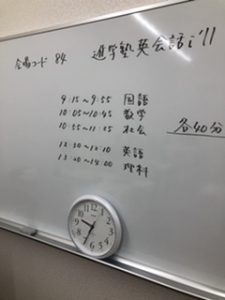 会場コード 84 進学塾英会話i'll
9:15~9:55 国語
10:05~10:45 数学
10:55~11:35 社会
各40分
12:30~12:10 英語
13:20~14:00 理科